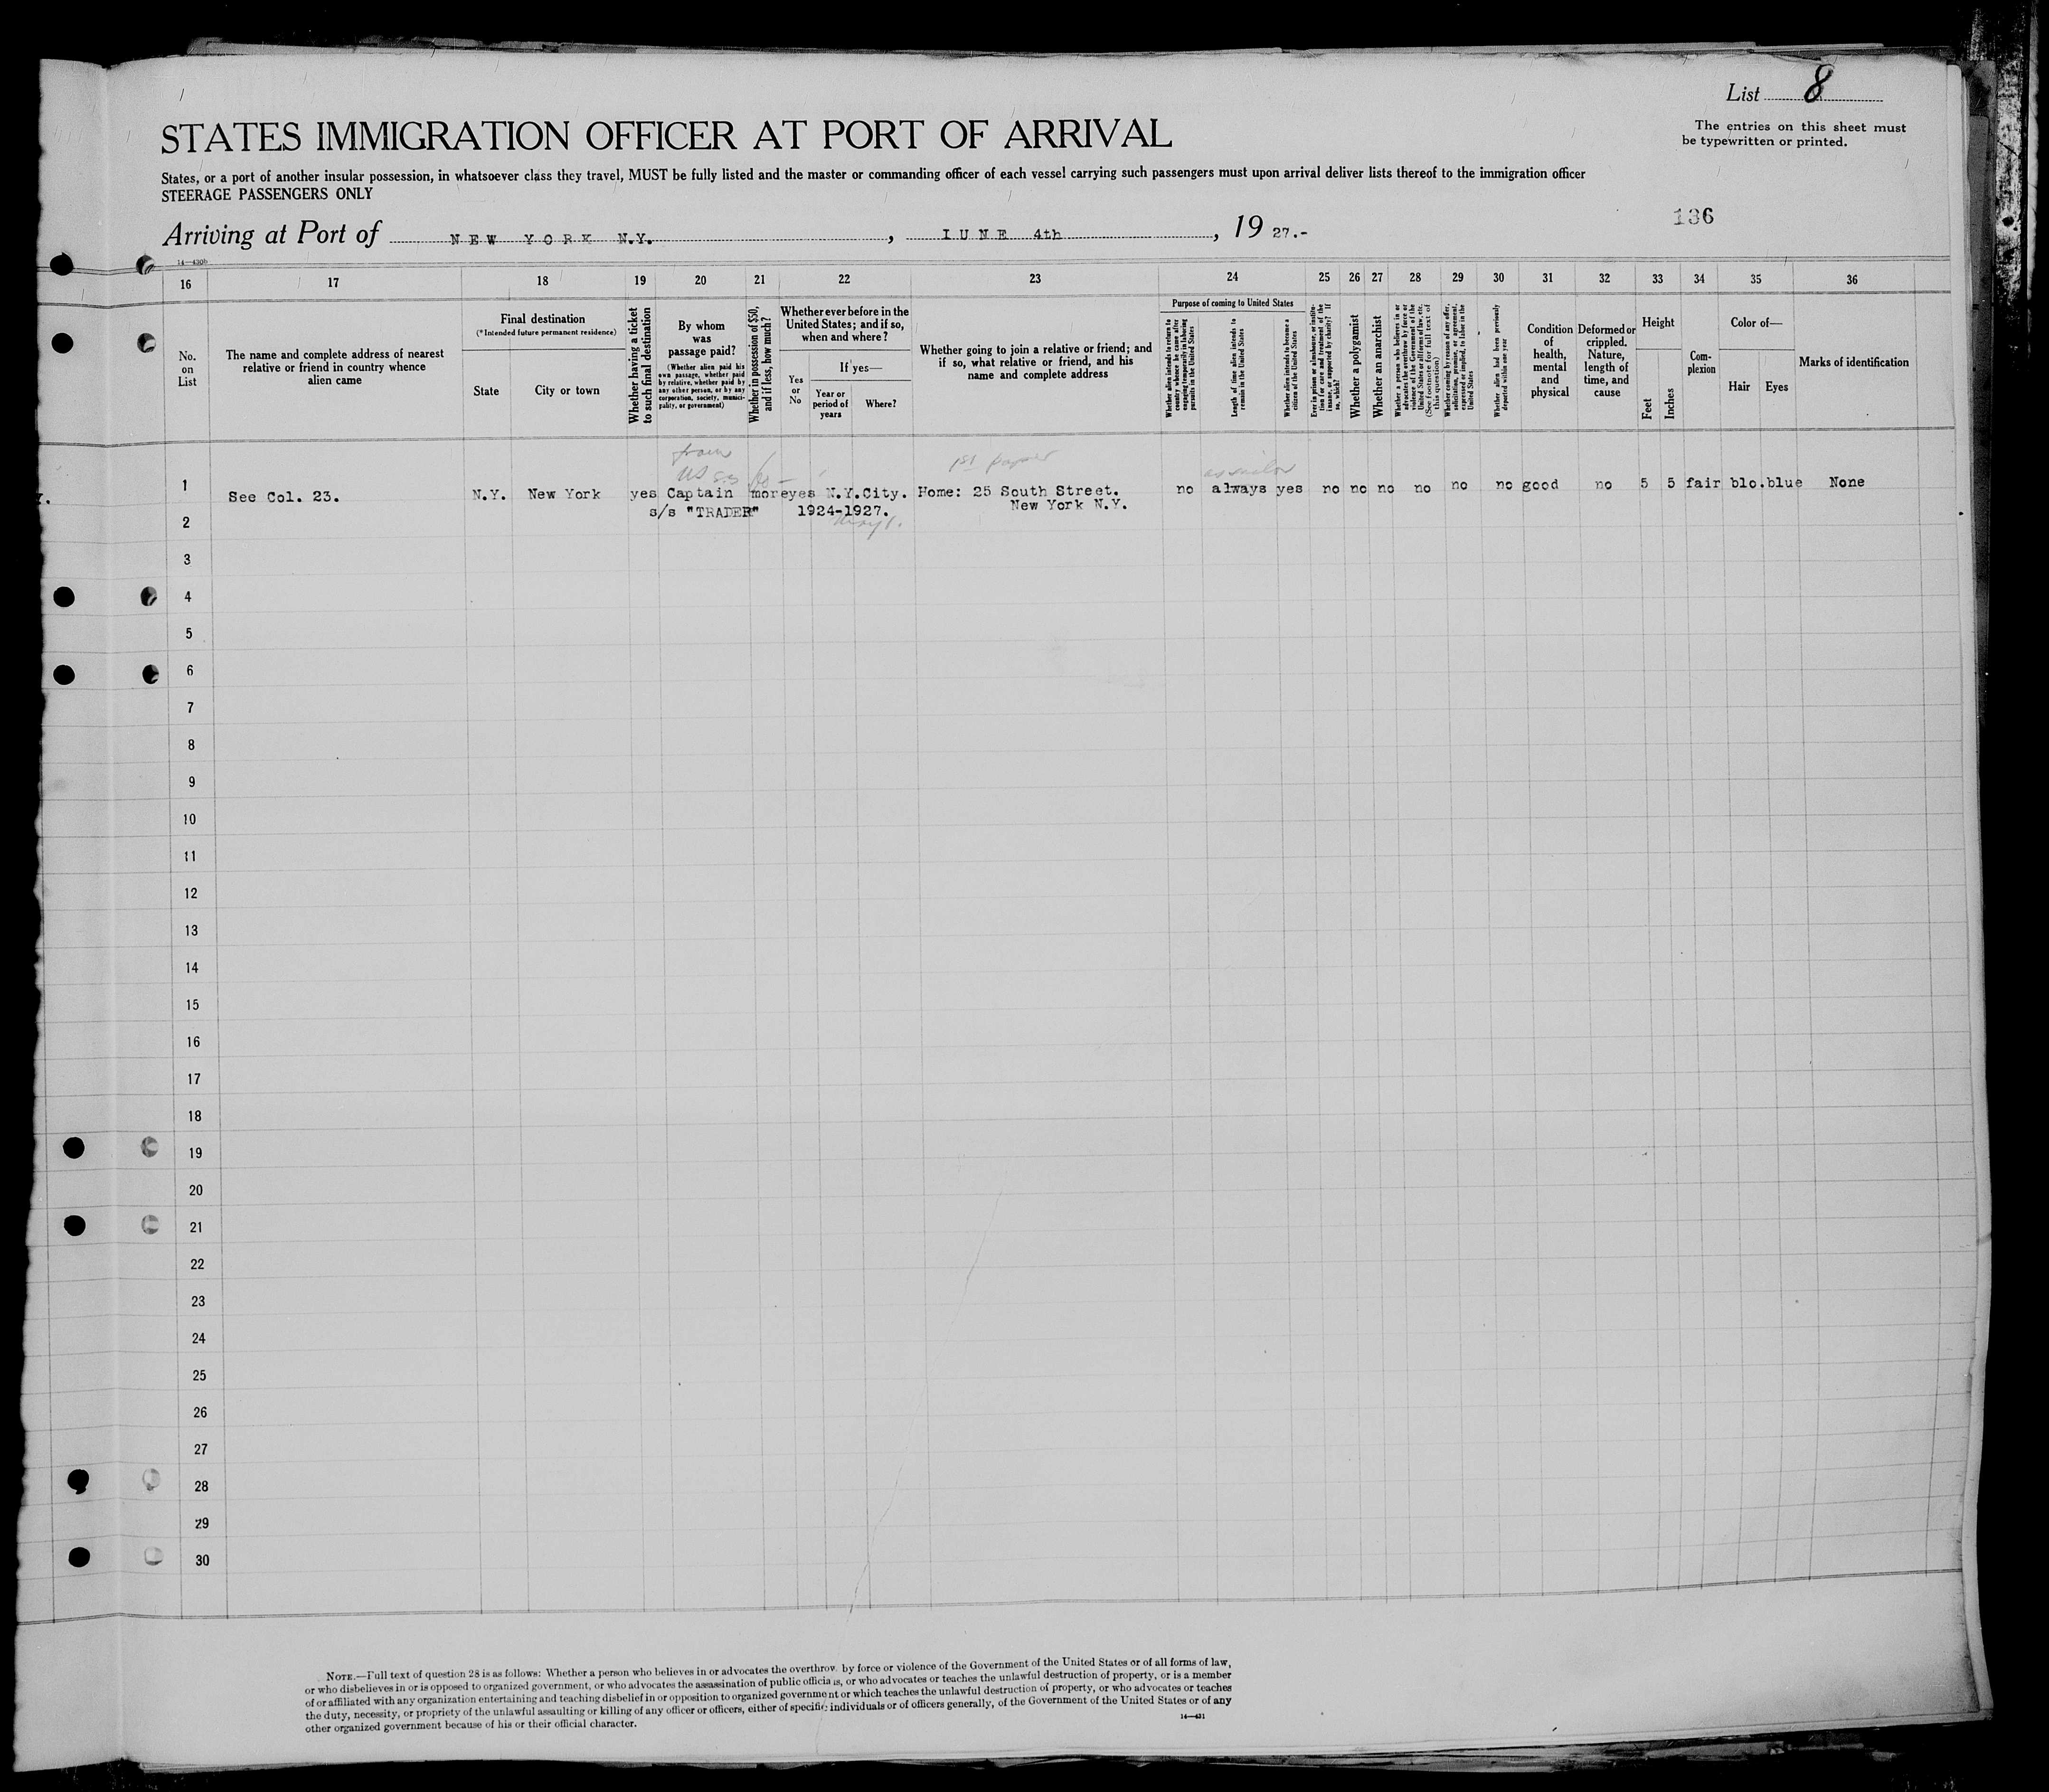 List 8
The entries on this sheet must
be typewritten or printed.
STATES IMMIGRATION OFFICER AT PORT OF ARRIVAL
States, or a port of another insular possession, in whatsoever class they travel, MUST be fully listed and the master or commanding officer of each vessel carrying such passengers must upon arrival deliver lists thereof to the immigration officer
STEERAGE PASSENGERS ONLY
136
Arriving at Port of NEW YORK N.Y. , IUNE 4th , 19 27.-
14—430b
16 17 18 19 20 21 22 23 24 25 26 27 28 29 30 31 32 33 34 35 36
No.
on
List
The name and complete address of nearest
relative or friend in country whence
alien came
Final destination
(*Intended future permanent residence)
State
City or town
Whether having a ticket
to such final destination
By whom
was
passage paid?
(Whether alien paid his
own passage, whether paid
by relative, whether paid by
any other person, or by any
corporation, society, munici-
pality, or government)
Whether in possession of $50,
and if less, how much?
Whether ever before in the
United States; and if so,
when and where?
Yes
or
No
If yes—
Year or
period of
years
Where?
Whether going to join a relative or friend; and
if so, what relative or friend, and his
name and complete address
Purpose of coming to United States
Whether alien intends to return to
country whence he came after
engaging temporarily in laboring
pursuits in the United States
Length of time alien intends to
remain in the United States
Whether alien intends to become a
citizen of the United States
Ever in prison or almshouse, or institu-
tion for care and treatment of the
insane, or supported by charity? If
so, which?
Whether a polygamist
Whether an anarchist
Whether a person who believes in or
advocates the overthrow by force or
violence of the Government of the
United States or all forms of law, etc.
(See footnote for full text of
this question)
Whether coming by reason of any offer,
solicitation, promise, or agreement,
expressed or implied, to labor in the
United States
Whether alien had been previously
deported within one year
Condition
of
health,
mental
and
physical
Deformed or
crippled.
Nature,
length of
time, and
cause
Height
Feet
Inches
Com-
plexion
Color of—
Hair
Eyes
Marks of identification
from
US 1st paper
1 See Col. 23. N.Y. New York yes Captain more yes N.Y.City. Home: 25 South Street. no always yes no no no no no no good no 5 5 fair blo. blue None
s/s "TRADER" 1924-1927. New York N.Y.
2
3
4
5
6
7
8
9
10
11
12
13
14
15
16
17
18
19
20
21
22
23
24
25
26
27
28
29
30
NOTE.—Full text of question 28 is as follows: Whether a person who believes in or advocates the overthrow by force or violence of the Government of the United States or of all forms of law,
or who disbelieves in or is opposed to organized government, or who advocates the assassination of public officials, or who advocates or teaches the unlawful destruction of property, or is a member
of or affiliated with any organization entertaining and teaching disbelief in or opposition to organized government or which teaches the unlawful destruction of property, or who advocates or teaches
the duty, necessity, or propriety of the unlawful assaulting or killing of any officer or officers, either of specific individuals or of officers generally, of the Government of the United States or of any
other organized government because of his or their official character.
14—431